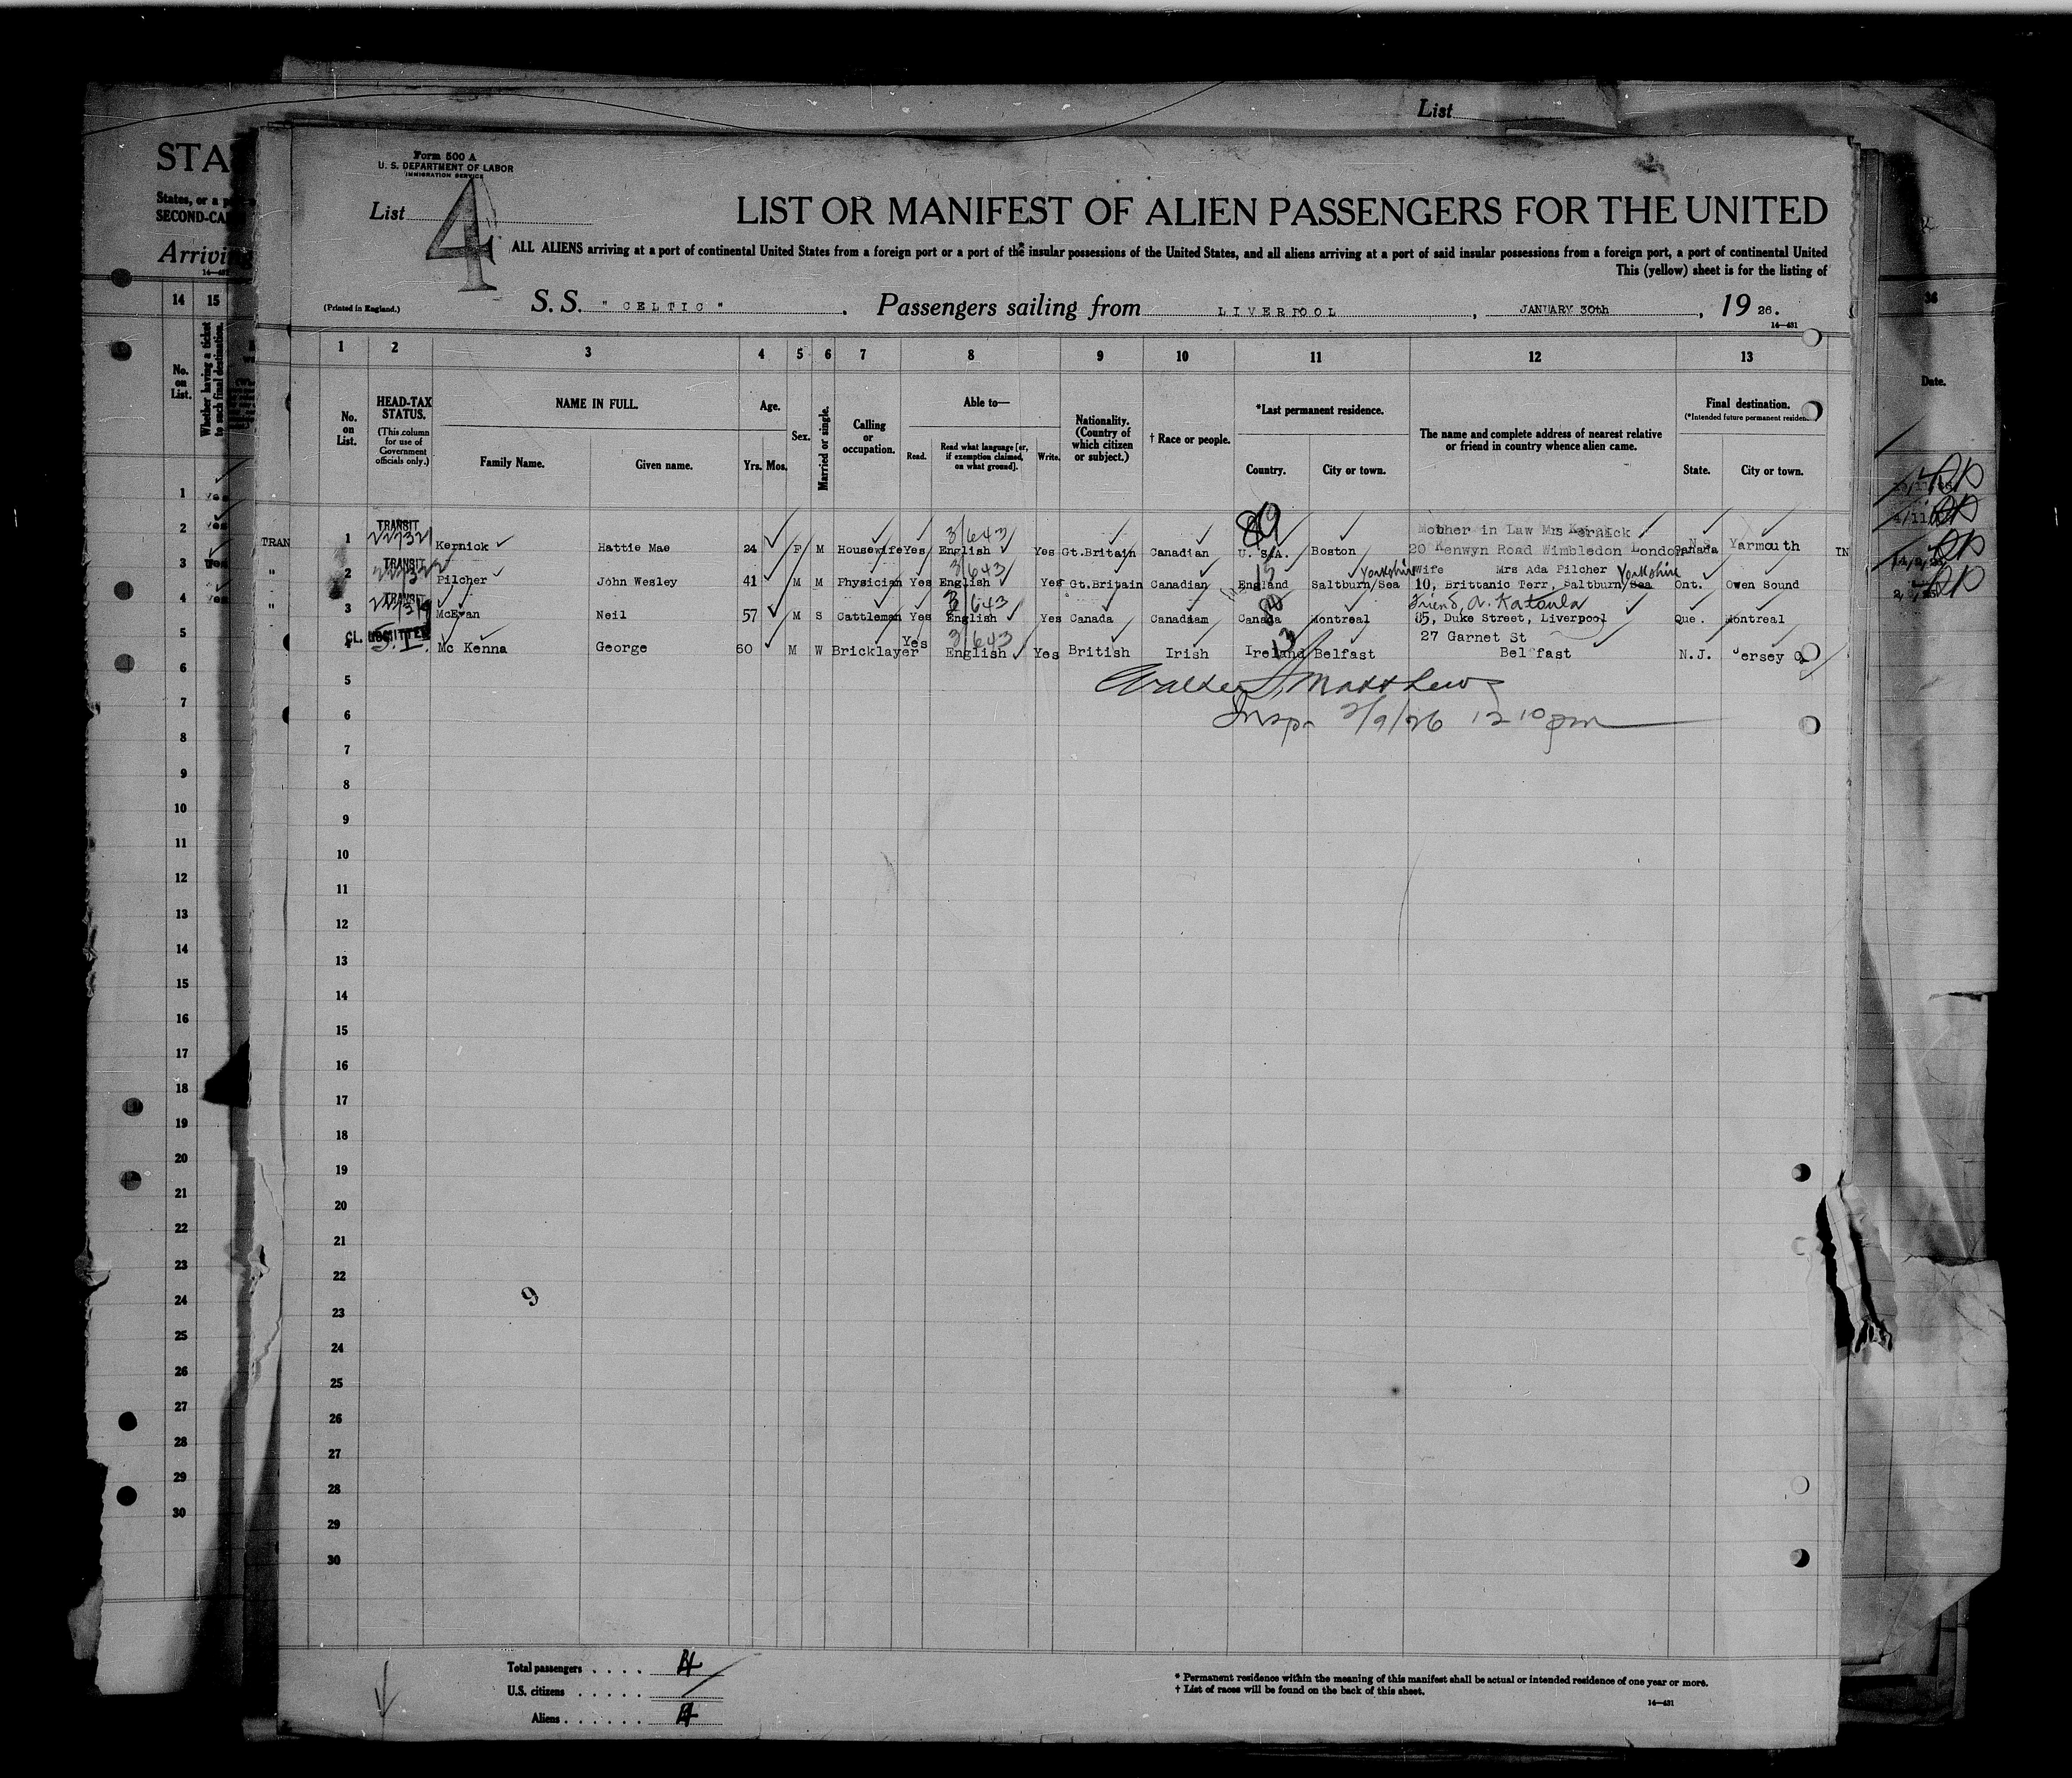 List
STA
States, or a p
SECOND-CA
Arrivin
14 15
No. on List.
Whether having a ticket to such final destination.
36
Date.
Form 500 A
U. S. DEPARTMENT OF LABOR
IMMIGRATION SERVICE
List 4
LIST OR MANIFEST OF ALIEN PASSENGERS FOR THE UNITED
ALL ALIENS arriving at a port of continental United States from a foreign port or a port of the insular possessions of the United States, and all aliens arriving at a port of said insular possessions from a foreign port, a port of continental United
This (yellow) sheet is for the listing of
(Printed in England.)
S. S. "CELTIC". Passengers sailing from LIVERPOOL, JANUARY 30th, 1926.
14—431
1 2 3 4 5 6 7 8 9 10 11 12 13
No. on List.
HEAD-TAX STATUS. (This column for use of Government officials only.)
NAME IN FULL.
Family Name. Given name.
Age. Yrs. Mos.
Sex.
Married or single.
Calling or occupation.
Able to—
Read. Read what language [or, if exemption claimed, on what ground]. Write.
Nationality. (Country of which citizen or subject.)
† Race or people.
*Last permanent residence.
Country. City or town.
The name and complete address of nearest relative or friend in country whence alien came.
Final destination.
(*Intended future permanent residen
State. City or town.
TRAN 1 TRANSIT Kernick Hattie Mae 24 F M Housewife Yes English 3/643 Yes Gt.Britain Canadian 89 U.S.A. Boston Mother in Law Mrs Kernick 20 Kenwyn Road Wimbledon London N.S. Canada Yarmouth IN
" 2 TRANSIT Pilcher John Wesley 41 M M Physician Yes English 3/643 Yes Gt.Britain Canadian 13 England Saltburn/Sea Yorkshire Wife Mrs Ada Pilcher 10, Brittanic Terr, Saltburn/Sea Yorkshire Ont. Owen Sound
" 3 TRANSIT McEwan Neil 57 M S Cattleman Yes English 3/643 Yes Canada Canadian Canada Montreal Friend, A. Katsula 85, Duke Street, Liverpool Que. Montreal
4 ADMITTED S.I. Mc Kenna George 60 M W Bricklayer Yes English 3/643 Yes British Irish 13 Ireland Belfast 27 Garnet St Belfast N.J. Jersey C
Walter J. Matthews
Inspr 2/9/26 12 10 pm
5
6
7
8
9
10
11
12
13
14
15
16
17
18
19
20
21
22
23
24
25
26
27
28
29
30
9
Total passengers . . . . 4
U.S. citizens . . . . .
Aliens . . . . . . 4
* Permanent residence within the meaning of this manifest shall be actual or intended residence of one year or more.
† List of races will be found on the back of this sheet.
14—431